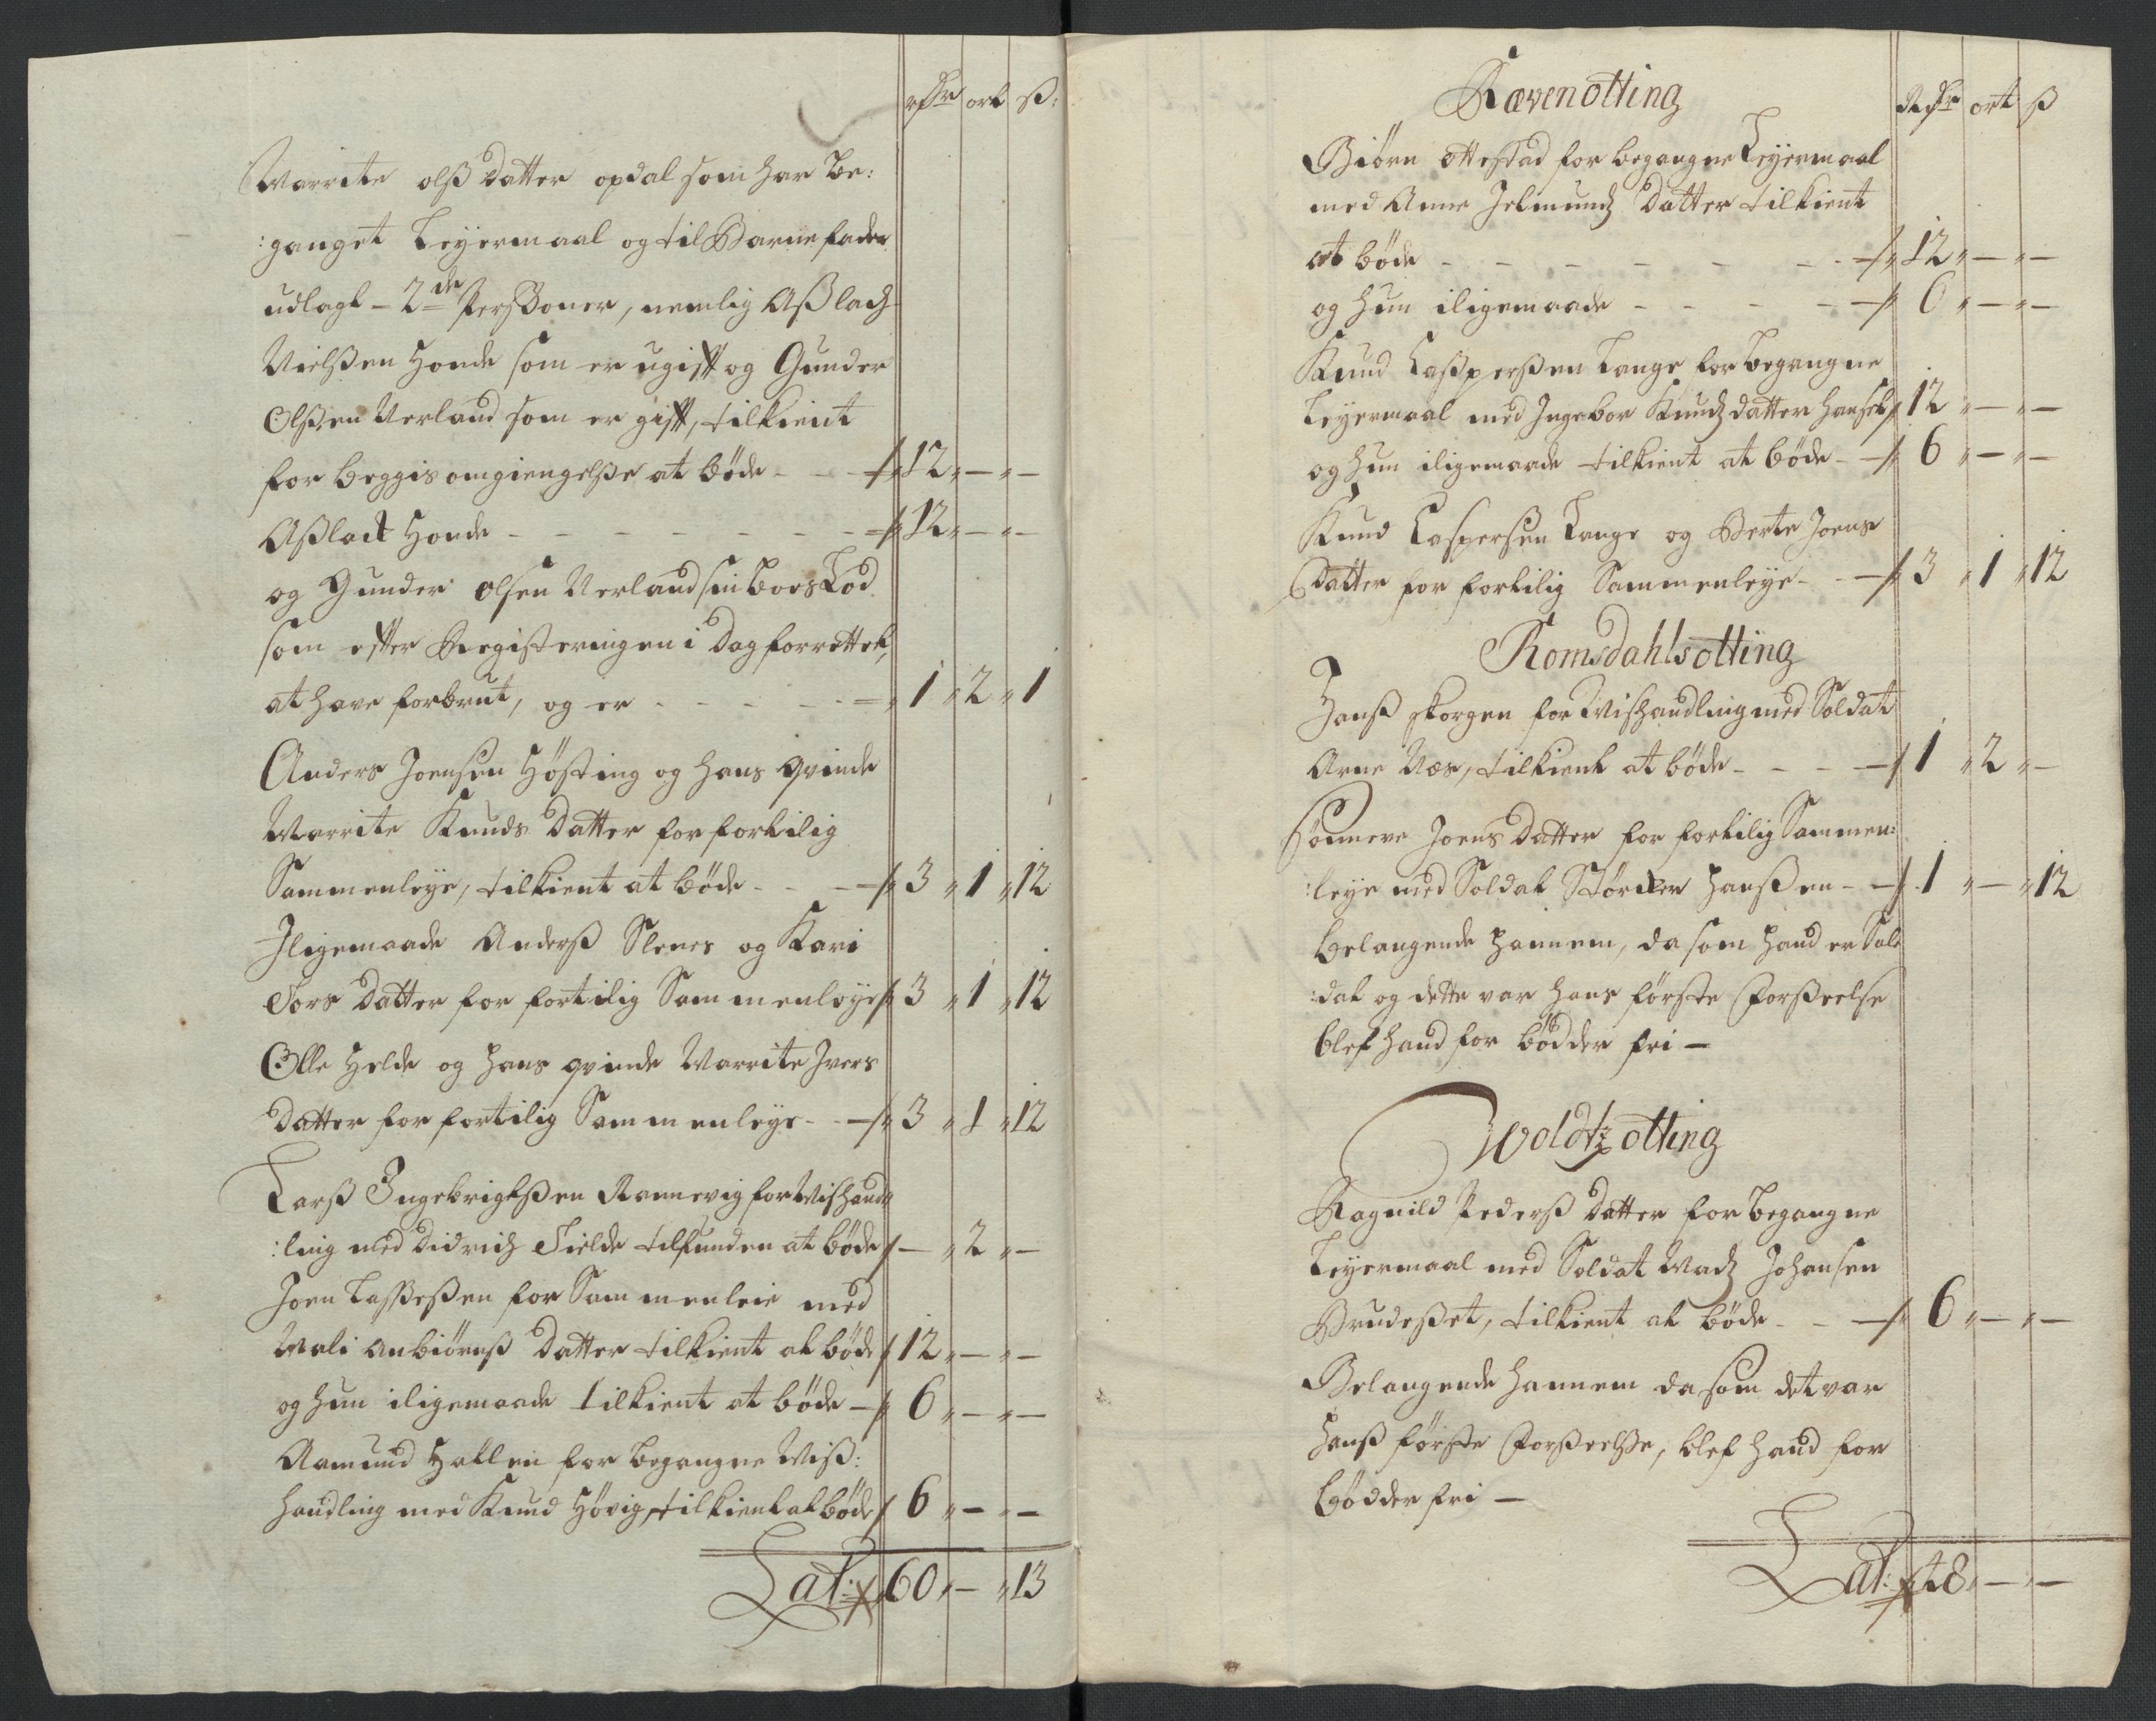 rdr ort ß:
Marrite olß datter opdal som har be:
:ganget Leyermaal og til Barnefader
udlagt - 2de Perßoner, nemlig Aßlach
Nielßen Honde som er ugift og Gunder
Olßen Verland som er gift, tilkient
for beggis omgiengelße at bøde - - - 12 " - " -
Aßlack Honde - - - - - - - 12 " - " -
og Gunder olsen Verland sin boeslod
som efter Registeringen i dag forrettet,
at have forbrut, og er - - - - - 1 " 2 " 1
Anders Joensen Høsting og hans qvinde
Marrite Knuds datter for fortilig
Sammenleye, tilkient at bøde - - - 3 " 1 " 12
Iligemaade Anderß Slenes og Kari
Tors datter for fortilig Sammenleye 3 " 1 " 12
Olle Helde og hans qvinde Marrite Ivers
datter for fortilig Sammenleye - - 3 " 1 " 12
Larß Ingebrigtßen Rannevig for Mishand
:ling med Didrich Tielde tilfunden at bøde - " 2 " -
Joen Laßeßen for Sammenleie med
Mali Anbiørnß datter tilkient at bøde 12 " - " -
og hun iligemaade tilkient at bøde - 6 " - " -
Aamund Hallen for begangne Miß:
handling med Knud Høvig, tilkient at bøde 6 " - " -
Lat: 60 " - " 13
Rævenotting
Rdr ort ß
Biørn Ottestad for begangne Leyermaal
med Anne Jelmundz datter tilkient
at bøde - - - - - - 12 " - " -
og hun iligemaade - - - - 6 " - " -
Knud Caßperßen Lange for begangne
Leyermaal med Ingebor Knudz datter 12 " - " -
og hun iligemaade tilkient at bøde - 6 " - " -
Knud Caspersen Lange og Berte Joens
datter for fortilig Sammenleye - - 3 " 1 " 12
Romsdahls otting
Hanß skorgen for Mishandling med Soldat
Arne Næs, tilkient at bøde - - - 1 " 2 " -
Sønneve Joens datter for fortilig Sammen:
:leye med Soldat Størcker Hanßen - 1 " - " 12
belangende hannem, da som hand er Sol
:dat og dette var hans første forßeelse
blef hand for bødder fri -
Woldtz otting
Ragnild Pederß datter for begangne
Leyermaal med Soldat Madz Johansen
Brudeßet, tilkient at bøde - - 6 " - " -
Belangende hannem da som det var
hanß første forßeelße, blef hand for
bødder fri -
Lat: 48 " - " -